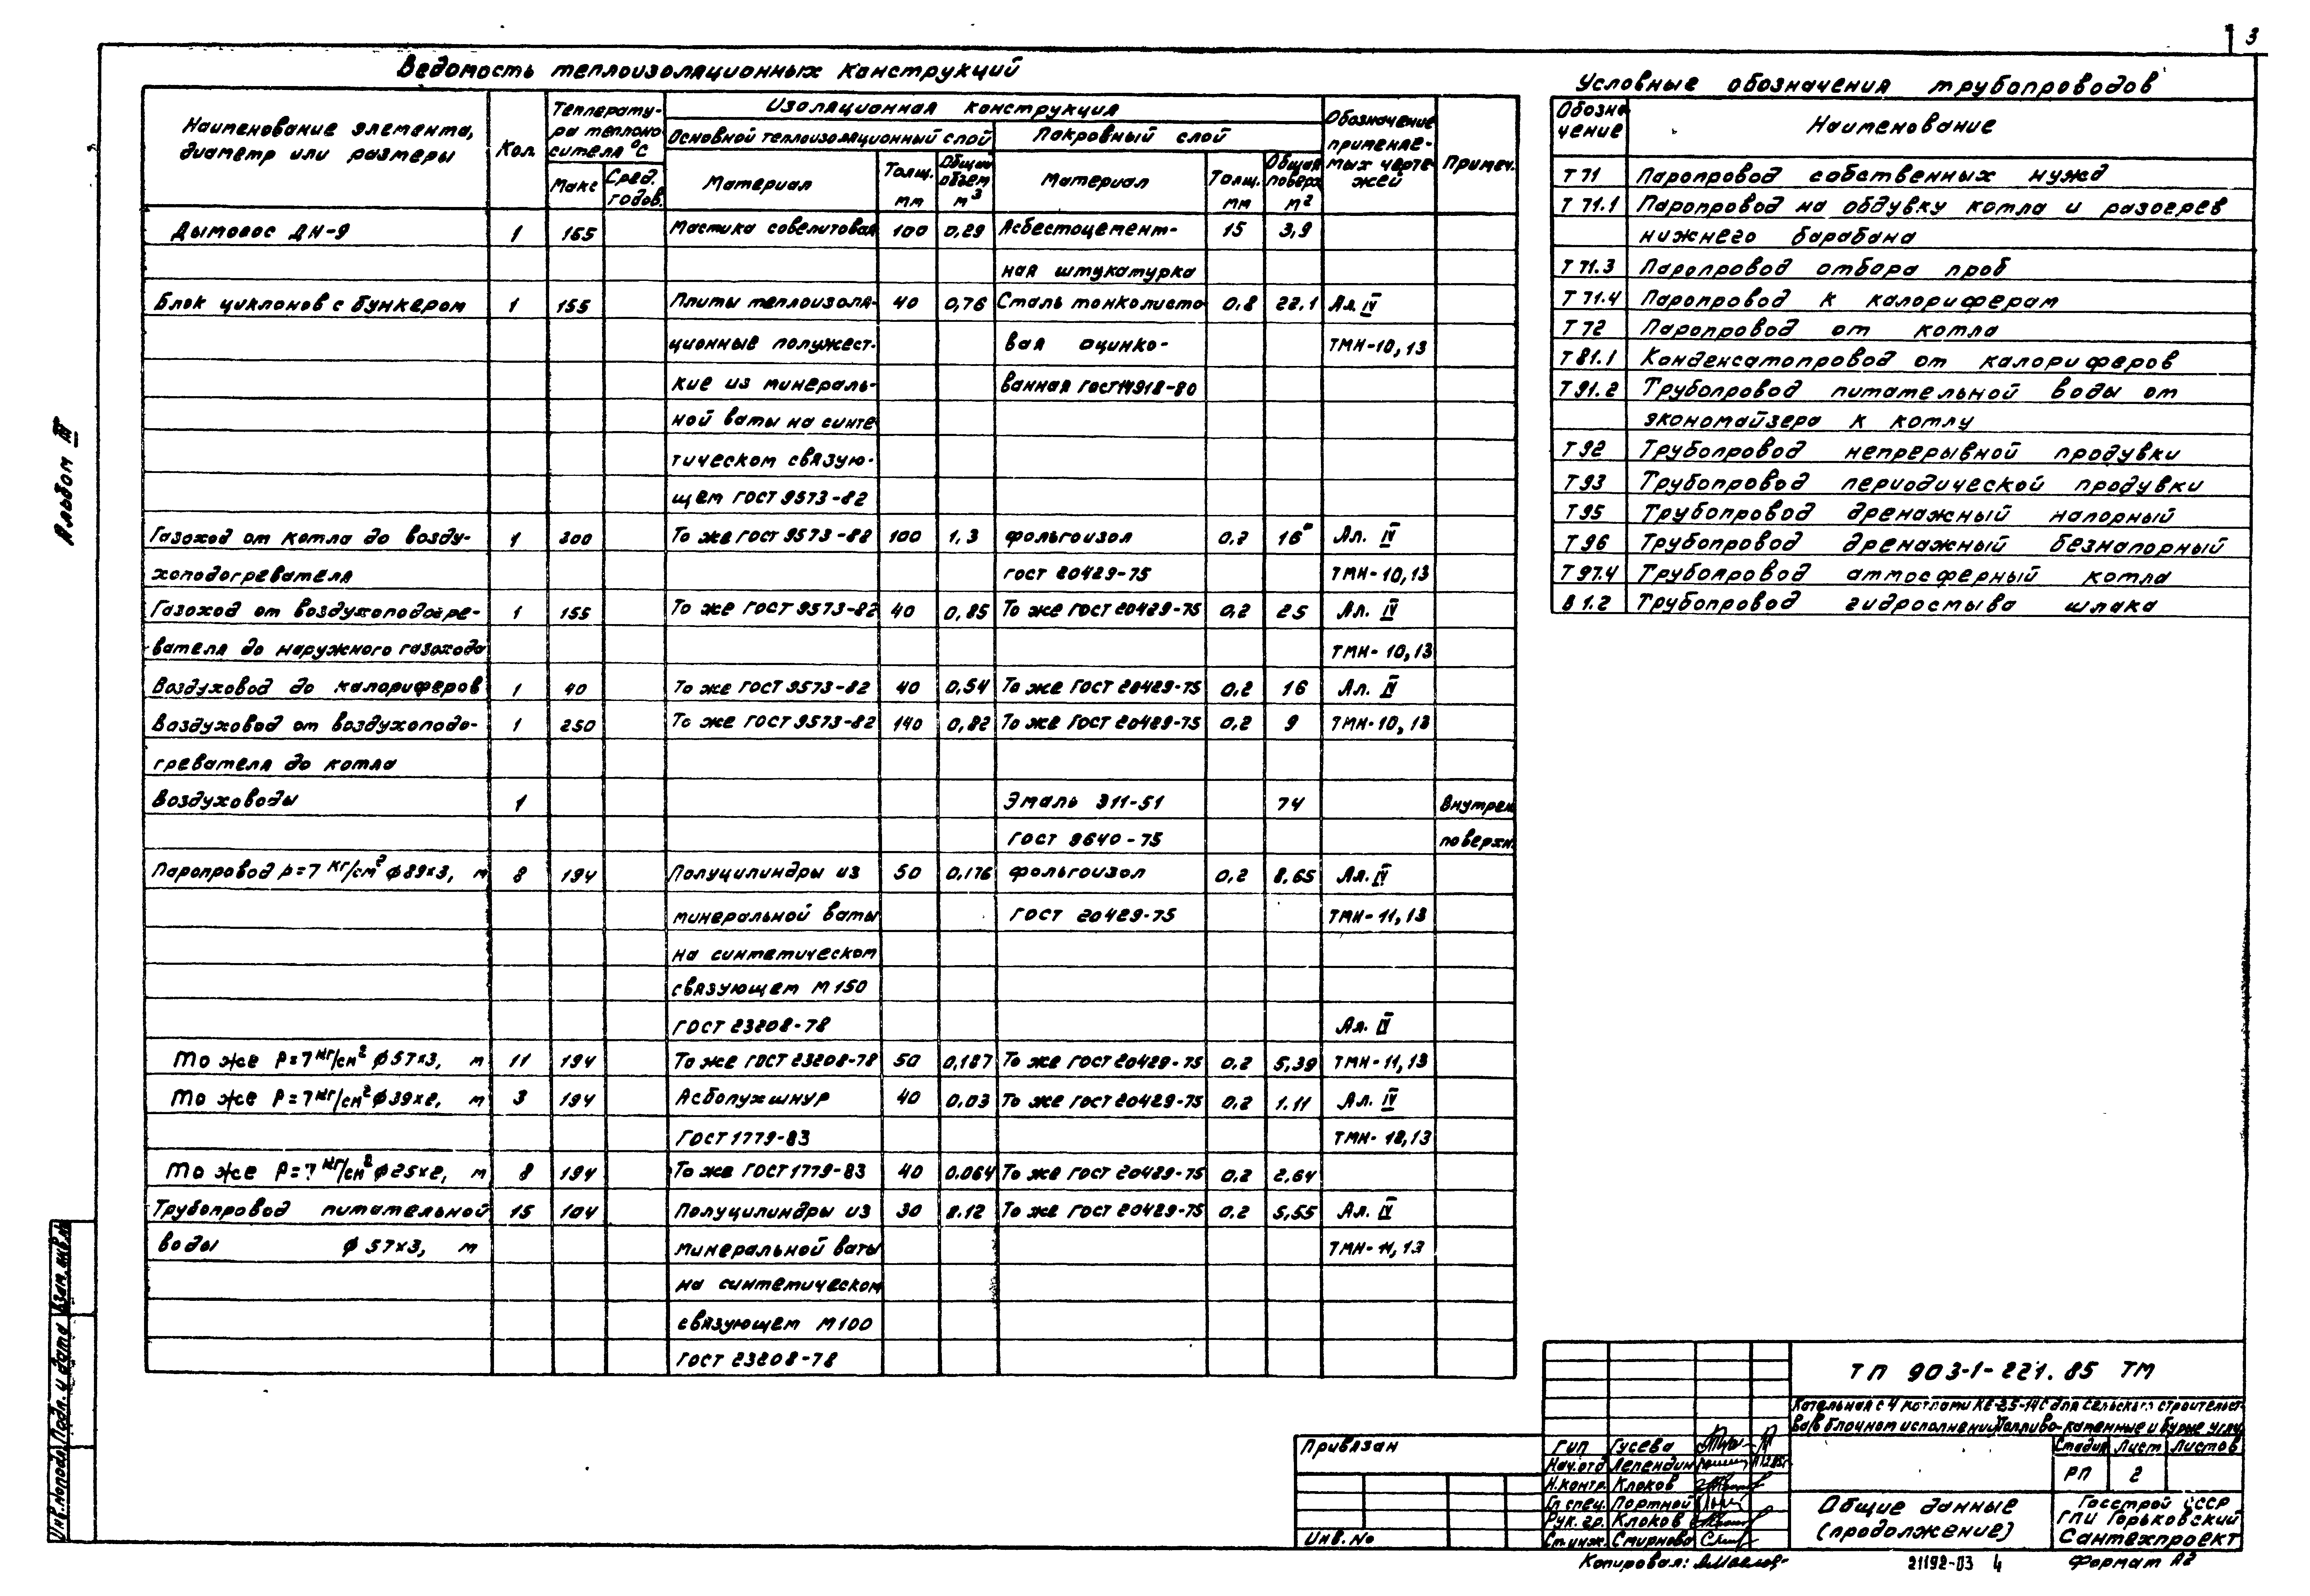 3
Ведомость теплоизоляционных конструкций
Наименование элемента, диаметр или размеры
Кол.
Температура теплоносителя °С
Макс
Сред. годов.
Изоляционная конструкция
Основной теплоизоляционный слой
Покровный слой
Материал
Толщ. мм
Общий объем м³
Материал
Толщ. мм
Общая поверх. м²
Обозначение применяемых чертежей
Примеч.
Дымосос ДН-9 1 165 Мастика совелитовая 100 0,29 Асбестоцемент- 15 3,9
ная штукатурка
Блок циклонов с бункером 1 155 Плиты теплоизоля- 40 0,76 Сталь тонколисто 0.8 22.1 Ал. IV
ционные полужест- вая оцинко- ТМН-10,13
кие из минераль- ванная ГОСТ14918-80
ной ваты на синте
тическом связую-
щем ГОСТ 9573-82
Газоход от котла до возду- 1 300 То же ГОСТ 9573-82 100 1,3 фольгоизол 0,2 16 Ал. IV
хоподогревателя ГОСТ 20429-75 ТМН-10,13
Газоход от воздухоподогре- 1 155 То же ГОСТ 9573-82 40 0,85 То же ГОСТ 20429-75 0,2 25 Ал. IV
вателя до наружного газохода ТМН-10,13
Воздуховод до калориферов 1 40 То же ГОСТ 9573-82 40 0,54 То же ГОСТ 20429-75 0,2 16 Ал. IV
Воздуховод от воздухоподо- 1 250 То же ГОСТ 9573-82 140 0,82 То же ГОСТ 20429-75 0,2 9 ТМН-10,13
гревателя до котла
Воздуховоды 1 Эмаль ЭП-51 74 Внутрен.
ГОСТ 9640-75 поверхн.
Паропровод р=7 кг/см² ф89х3, м 8 194 Полуцилиндры из 50 0,176 фольгоизол 0,2 8.65 Ал. IV
минеральной ваты ГОСТ 20429-75 ТМН-11,13
на синтетическом
связующем М150
ГОСТ 23208-78 Ал. IV
То же Р=7 кг/см² ф57х3, м 11 194 То же ГОСТ 23208-78 50 0,187 То же ГОСТ 20429-75 0,2 5,39 ТМН-11,13
То же Р=7 кг/см² ф39х2, м 3 194 Асбопухшнур 40 0.03 То же ГОСТ 20429-75 0,2 1.11 Ал. IV
ГОСТ 1779-83 ТМН-12,13
То же Р=7 кг/см² ф25х2, м 8 194 То же ГОСТ 1779-83 40 0.064 То же ГОСТ 20429-75 0,2 2,64
Трубопровод питательной 15 104 Полуцилиндры из 30 0.12 То же ГОСТ 20429-75 0.2 5,55 Ал. IV
воды ф57х3, м минеральной ваты ТМН-11,13
на синтетическом
связующем М100
ГОСТ 23208-78
Условные обозначения трубопроводов
Обозначение Наименование
Т71 Паропровод собственных нужд
Т71.1 Паропровод на обдувку котла и разогрев
нижнего барабана
Т71.3 Паропровод отбора проб
Т71.4 Паропровод к калориферам
Т72 Паропровод от котла
Т81.1 Конденсатопровод от калориферов
Т91.2 Трубопровод питательной воды от
экономайзера к котлу
Т92 Трубопровод непрерывной продувки
Т93 Трубопровод периодической продувки
Т95 Трубопровод дренажный напорный
Т96 Трубопровод дренажный безнапорный
Т97.4 Трубопровод атмосферный котла
В1.2 Трубопровод гидросмыва шлака
Альбом III
Взам.инв.№
Подп. и дата
Инв.№подл.
Привязан
Инв.№
ТП 903-1-221.85 ТМ
Котельная с 4 котлами КЕ-2,5-14С для сельского строительст-
ва(в блочном исполнении).Топливо-каменные и бурые угли
ГИП Гусева
Нач.отд Лепендин
Н.контр. Клоков
Гл.спец. Портной
Рук.гр. Клоков
Ст.инж. Смирнова
Стадия Лист Листов
РП 2
Общие данные
(продолжение)
Госстрой СССР
ГПИ Горьковский
Сантехпроект
Копировал:
21192-03 4
Формат А2